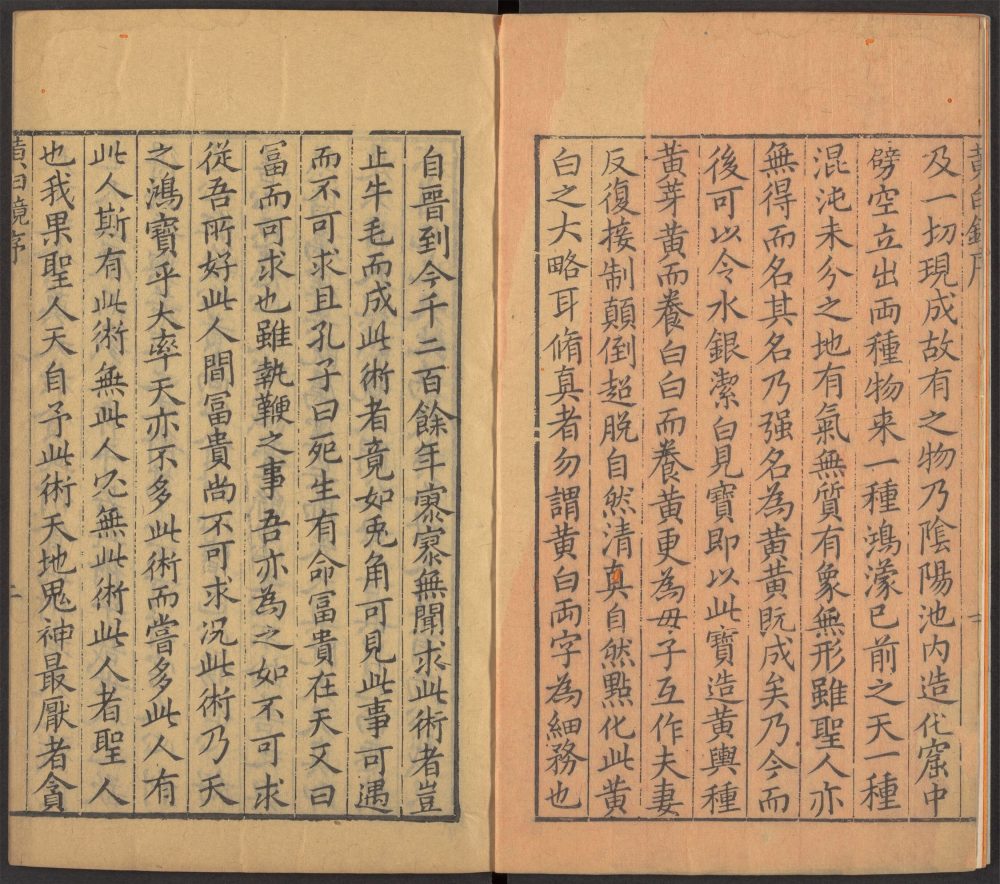 黃白鏡序
及一切現成故有之物乃陰陽池內造化窟中
劈空立出両種物来一種鴻濛已前之天一種
混沌未分之地有氣無質有象無形雖聖人亦
無得而名其名乃强名為黃黃既成矣乃今而
後可以令水銀潔白見寶即以此寶造黃輿種
黃芽黃而養白白而養黃更為母子互作夫妻
反復接制顛倒超脫自然清真自然點化此黃
白之大略耳脩真者勿謂黃白両字為細務也
一
自晋到今千二百餘年寥寥無聞求此術者豈
止牛毛而成此術者竟如兎角可見此事可遇
而不可求且孔子曰死生有命冨貴在天又曰
冨而可求也雖執鞭之事吾亦為之如不可求
從吾所好此人間冨貴尚不可求况此術乃天
之鴻寶乎大率天亦不多此術而嘗多此人有
此人斯有此術無此人必無此術此人者聖人
也我果聖人天自予此術天地鬼神最厭者貪
黃白鏡序
二